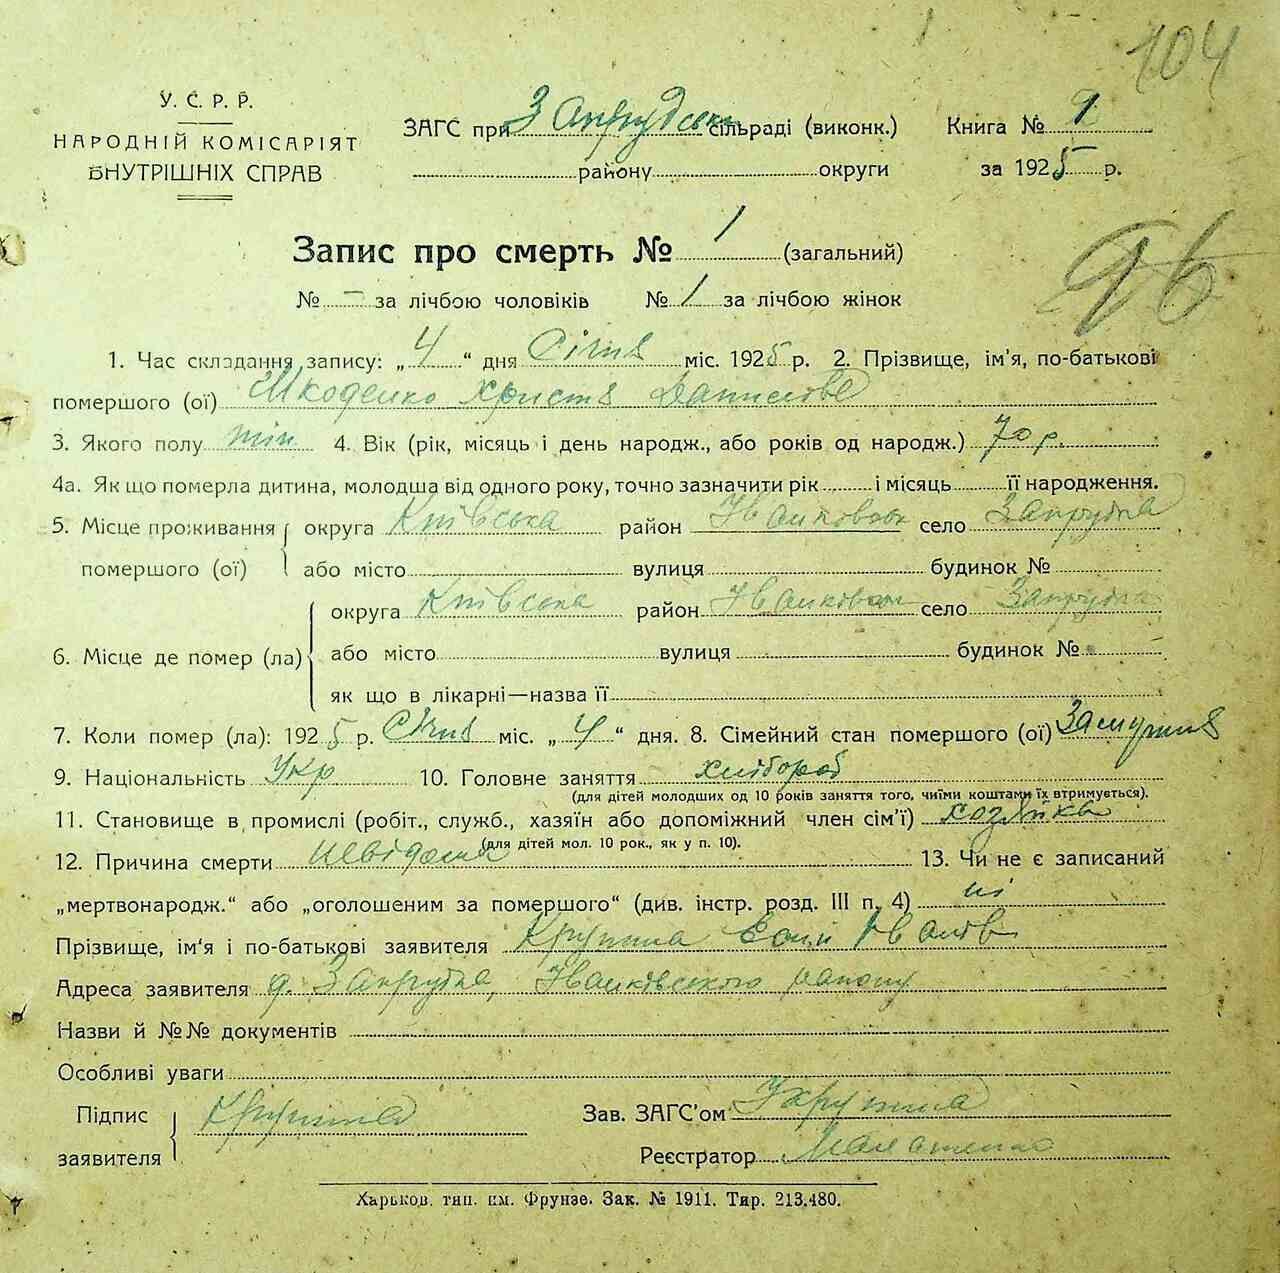 104
У. С. Р. Р.
НАРОДНІЙ КОМІСАРІЯТ
ВНУТРІШНІХ СПРАВ
ЗАГС при Запрудській сільраді (виконк.)
району округи
Книга № 1
за 1925 р.
96
Запис про смерть № 1 (загальний)
№ – за лічбою чоловіків № 1 за лічбою жінок
1. Час складання запису: „4“ дня Січня міс. 1925 р. 2. Прізвище, ім’я, по-батькові
помершого (ої) Христя
3. Якого полу жін. 4. Вік (рік, місяць і день народж., або років од народж.) 70 р.
4а. Як що померла дитина, молодша від одного року, точно зазначити рік і місяць її народження.
5. Місце проживання помершого (ої) округа Київська район Іванковськ село Запрудка
або місто вулиця будинок №
6. Місце де помер (ла) округа Київська район Іванковськ село Запрудка
або місто вулиця будинок №
як що в лікарні—назва її
7. Коли помер (ла): 1925 р. Січня міс. „4“ дня. 8. Сімейний стан помершого (ої) Замужня
9. Національність Укр 10. Головне заняття хлібороб
(для дітей молодших од 10 років заняття того, чиїми коштами їх втримується).
11. Становище в промислі (робіт., служб., хазяїн або допоміжний член сім’ї) хозяйка
(для дітей мол. 10 рок., як у п. 10).
12. Причина смерти невідома 13. Чи не є записаний
„мертвонародж.“ або „оголошеним за помершого“ (див. інстр. розд. III п. 4) ні
Прізвище, ім‘я і по-батькові заявителя
Адреса заявителя д. Запрудка, Іванківського району
Назви й №№ документів
Особливі уваги
Підпис заявителя
Зав. ЗАГС’ом
Реєстратор
Харьков. тип. им. Фрунзе. Зак. № 1911. Тир. 213.480.